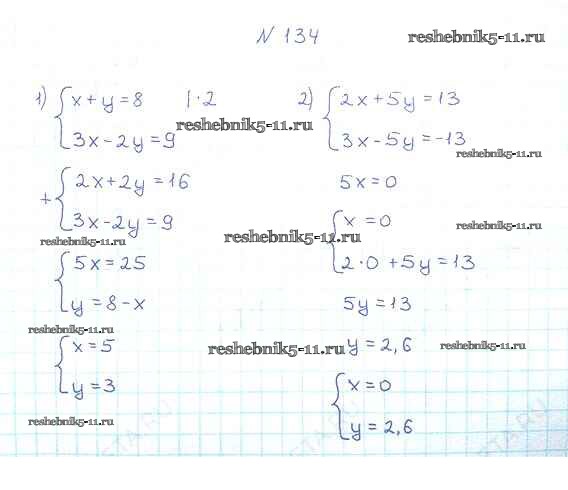 N 134
reshebnik5-11.ru
1) { x + y = 8 | · 2
{ 3x - 2y = 9
reshebnik5-11.ru
+ { 2x + 2y = 16
{ 3x - 2y = 9
reshebnik5-11.ru
{ 5x = 25
{ y = 8 - x
reshebnik5-11.ru
{ x = 5
{ y = 3
reshebnik5-11.ru
2) { 2x + 5y = 13
{ 3x - 5y = -13
reshebnik5-11.ru
5x = 0
{ x = 0
reshebnik5-11.ru
reshebnik5-11.ru
{ 2 · 0 + 5y = 13
5y = 13
reshebnik5-11.ru
y = 2,6
reshebnik5-11.ru
{ x = 0
{ y = 2,6